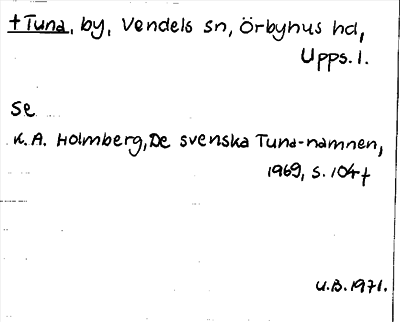 +Tuna, by, Vendels sn, Örbyhus hd,
Upps. l.
Se
K.A. Holmberg, De svenska Tuna-namnen,
1969, s. 104f
U.B. 1971.